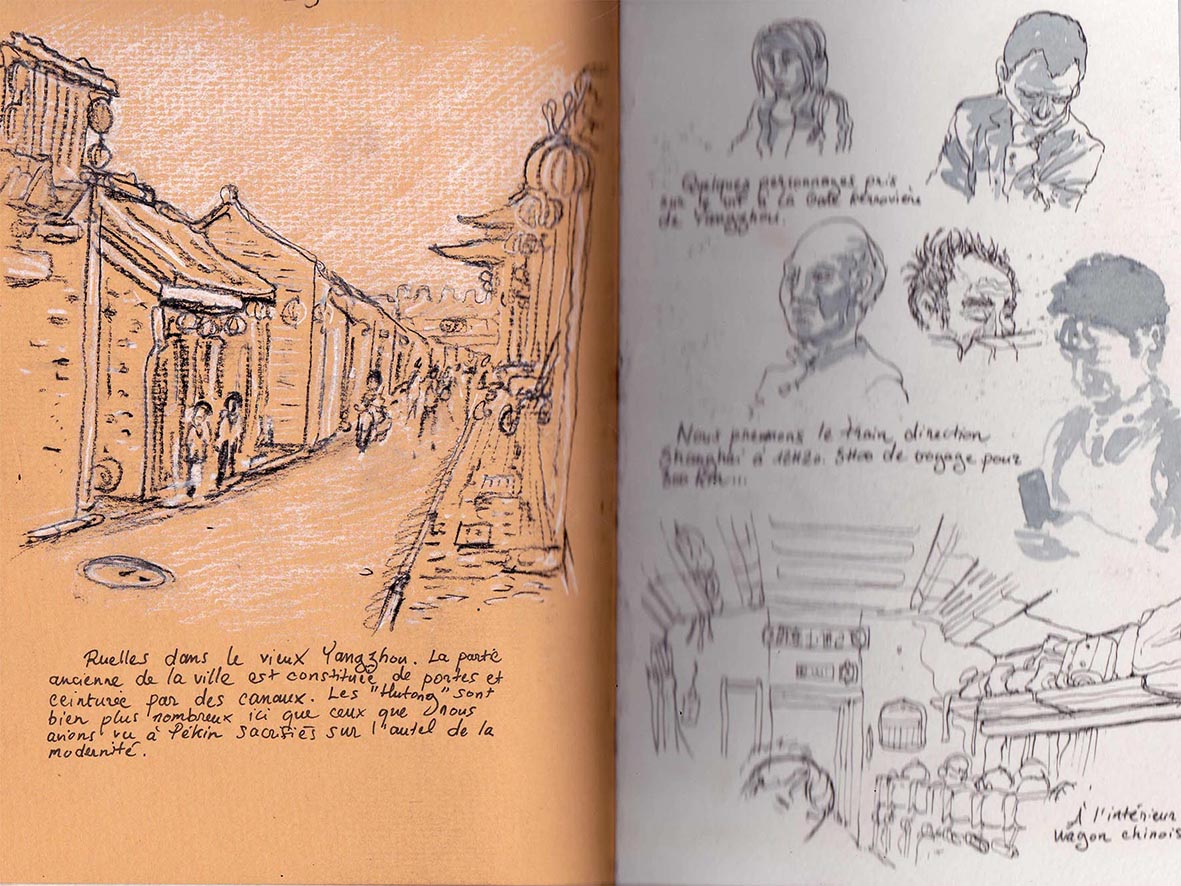 Ruelles dans le vieux Yangzhou. La partie
ancienne de la ville est constituée de portes et
ceinturée par des canaux. Les "Hutong" sont
bien plus nombreux ici que ceux que nous
avions vu à Pékin sacrifiés sur l'autel de la
modernité.
Quelques personnages pris
sur le vif à la Gare ferrovière
de Yangzhou.
Nous prennons le train, direction
Shanghaï à 12H20. 5H00 de voyage pour
300 km...
À l'intérieur
wagon chinois